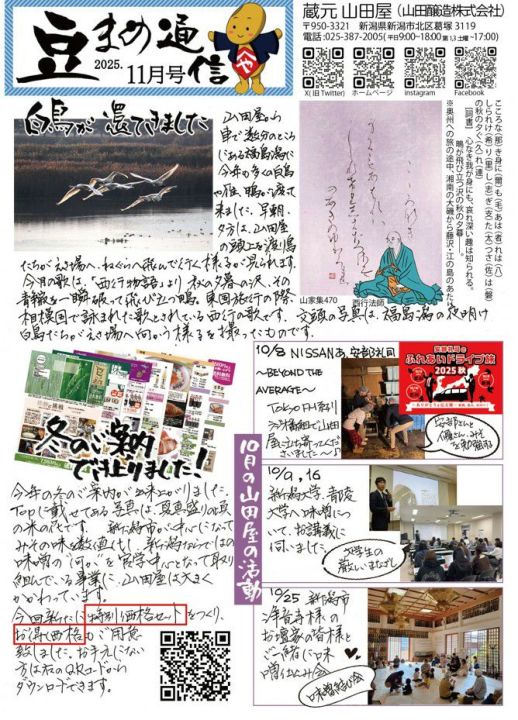 豆まめ通信
2025.
11月号
蔵元 山田屋（山田醸造株式会社）
〒950-3321　新潟県新潟市北区葛塚 3119
電話:025-387-2005(平日9:00~18:00 第1,3土曜~17:00)
X(旧 Twitter)
ホームページ
instagram
Facebook
白鳥が還てきました
山田屋から
車で数分のところ
にある福島潟に
今年の多くの白鳥
や雁、鴨が渡って
来ました。早朝、
夕方は、山田屋
の頭上を渡り鳥
たちがえさ場へ、ねぐらへ飛んでいく様子が見られます。
今月の歌は、「西行物語」より 秋の夕暮の沢、その
静寂を一瞬破って飛び立つ鴫。東国旅行の際、
相模国で詠まれた歌とされている西行の歌です。交頭の写真は、福島潟の夜明け
白鳥たちがえさ場へ向かう様子を撮ったものです。
こころな(那)き身に(爾)も(毛)あは(者)れは(八)
しられけ(希)り(里)し(志)ぎ(支)た(太)つさ(佐)は(盤)
の秋の夕ぐ(久)れ(連)
【詞書】 心なき我が身にも、哀れ深い趣は知られる。
鴫が飛び立つ沢の秋の夕暮―。
※奥州への旅の途中、湘南の大磯から藤沢・江の島のあたり
山家集470
西行法師
冬のご案内
でき上りました！
今年の冬のご案内が出来上がりました。
Topに載せてある写真は、真夏盛りの夏
の米の花です。 新潟市が中心になって
みその味を数値化し、新潟ならではの
味噌の「何か」を産学中心となって取り
組んでいる事業に、山田屋は大きく
かかわっています。
今回新たに特別価格セットをつくり、
お得価格もご用意
致しました。お手元にない
方は右のQRコードから
ダウンロードできます。
10月の山田屋の活動
10/8 NISSANあ、安部礼司
～BEYOND THE
AVERAGE～
Tokyo FM系列
ラジオ番組で山田
屋に立ち寄ってくだ
さいました〜♪
安部礼司の
ふれあいドライブ旅
2025 秋
10/9, 16
新潟大学、青陵
大学へ味噌につ
いて、お講義に
伺いました。
大学生の
厳しいまなざし
10/25 新潟市
浄音寺様の
お檀家の皆様と
ご一緒に味
噌仕込み会